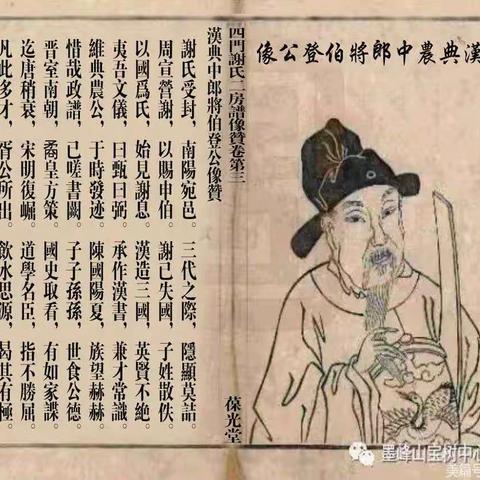 漢典農中郎將伯登公像
四門謝氏二房譜像贊卷第三 葆光堂
漢典中郎將伯登公像贊
謝氏受封，南陽宛邑。三代之際，隱顯莫詰。
周宣營謝，以賜申伯。謝已失國，子姓散佚。
以國爲氏，始見謝息。漢造三國，英賢不絶。
夷吾文儀，曰甄曰弼。承作漢書，兼才常識。
維典農公，于時發迹。陳國陽夏，族望赫赫。
惜哉政譜，已嗟書闕。子子孫孫，世食公德。
晋室南朝，裔皇方策。國史取看，有如家諜。
迄唐稍衰，宋明復崛。道學名臣，指不勝屈。
凡此多才，胥公所出。飲水思源，曷其有極。
墨峰山宝树中心
美篇号